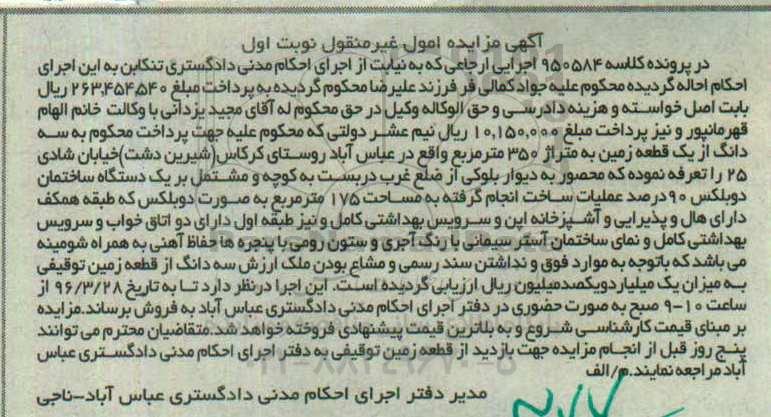 آگهی مزایده اموال غیرمنقول نوبت اول
در پرونده کلاسه ۹۵۰۵۸۴ اجرایی ارجاعی که به نیابت از اجرای احکام مدنی دادگستری تنکابن به این اجرای
احکام احاله گردیده محکوم علیه جواد کمالی فر فرزند علیرضا محکوم گردیده به پرداخت مبلغ ۲۶۳,۴۵۴,۵۴۰ ریال
بابت اصل خواسته و هزینه دادرسی و حق الوکاله وکیل در حق محکوم له آقای مجید یزدانی با وکالت خانم الهام
قهرمانپور و نیز پرداخت مبلغ ۱۰,۱۵۰,۰۰۰ ریال نیم عشر دولتی که محکوم علیه جهت پرداخت محکوم به سه
دانگ از یک قطعه زمین به متراژ ۳۵۰ مترمربع واقع در عباس آباد روستای کرکاس(شیرین دشت)خیابان شادی
۲۵ را تعرفه نموده که محصور به دیوار بلوکی از ضلع غرب دربست به کوچه و مشتمل بر یک دستگاه ساختمان
دوبلکس ۹۰ درصد عملیات ساخت انجام گرفته به مساحت ۱۷۵ مترمربع به صورت دوبلکس که طبقه همکف
دارای هال و پذیرایی و آشپزخانه اپن و سرویس بهداشتی کامل و نیز طبقه اول دارای دو اتاق خواب و سرویس
بهداشتی کامل و نمای ساختمان آستر سیمانی با رنگ آجری و ستون رومی با پنجره ها حفاظ آهنی به همراه شومینه
می باشد که باتوجه به موارد فوق و نداشتن سند رسمی و مشاع بودن ملک ارزش سه دانگ از قطعه زمین توقیفی
به میزان یک میلیاردویکصدمیلیون ریال ارزیابی گردیده است. این اجرا درنظر دارد تا به تاریخ ۹۶/۳/۲۸ از
ساعت ۱۰-۹ صبح به صورت حضوری در دفتر اجرای احکام مدنی دادگستری عباس آباد به فروش برساند.مزایده
بر مبنای قیمت کارشناسی شروع و به بلاترین قیمت پیشنهادی فروخته خواهد شد.متقاضیان محترم می توانند
پنج روز قبل از انجام مزایده جهت بازدید از قطعه زمین توقیفی به دفتر اجرای احکام مدنی دادگستری عباس
آباد مراجعه نمایند.م/الف
مدیر دفتر اجرای احکام مدنی دادگستری عباس آباد-ناجی